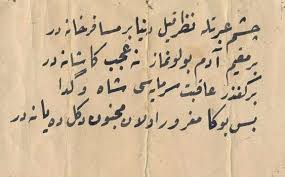 چشم عبرتله نظر قیل دنیا بر مسافرخانه در
بر مقیم آدم بولونماز نه عجب کاشانه در
بر کفندر عاقبت سرمایسی شاه و گدا
بس بوکا مغرور اولان مجنون دکل ده یا نه در